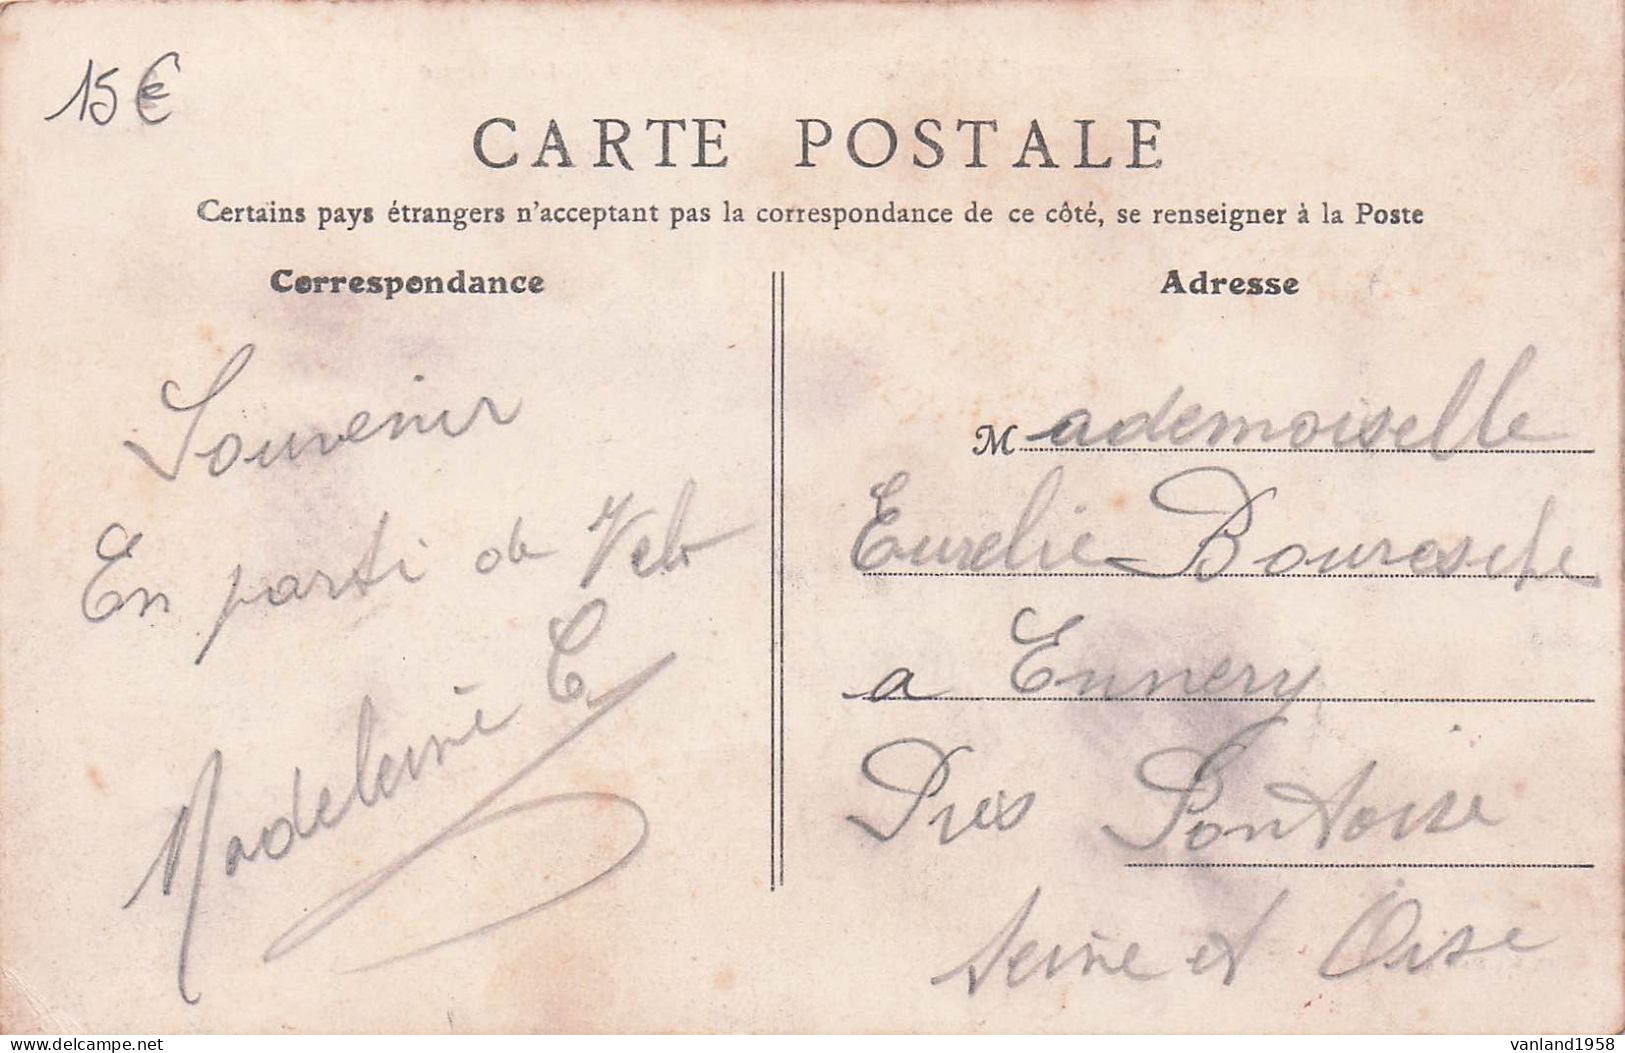 15€
CARTE POSTALE
Certains pays étrangers n'acceptant pas la correspondance de ce côté, se renseigner à la Poste
Correspondance
Souvenir
En parti de Velo
Madeleine C
Adresse
Mademoiselle
Eurelie Bourosche
a Ennery
Pres Pontoise
Seine et Oise
delcampe.net
vanland1958